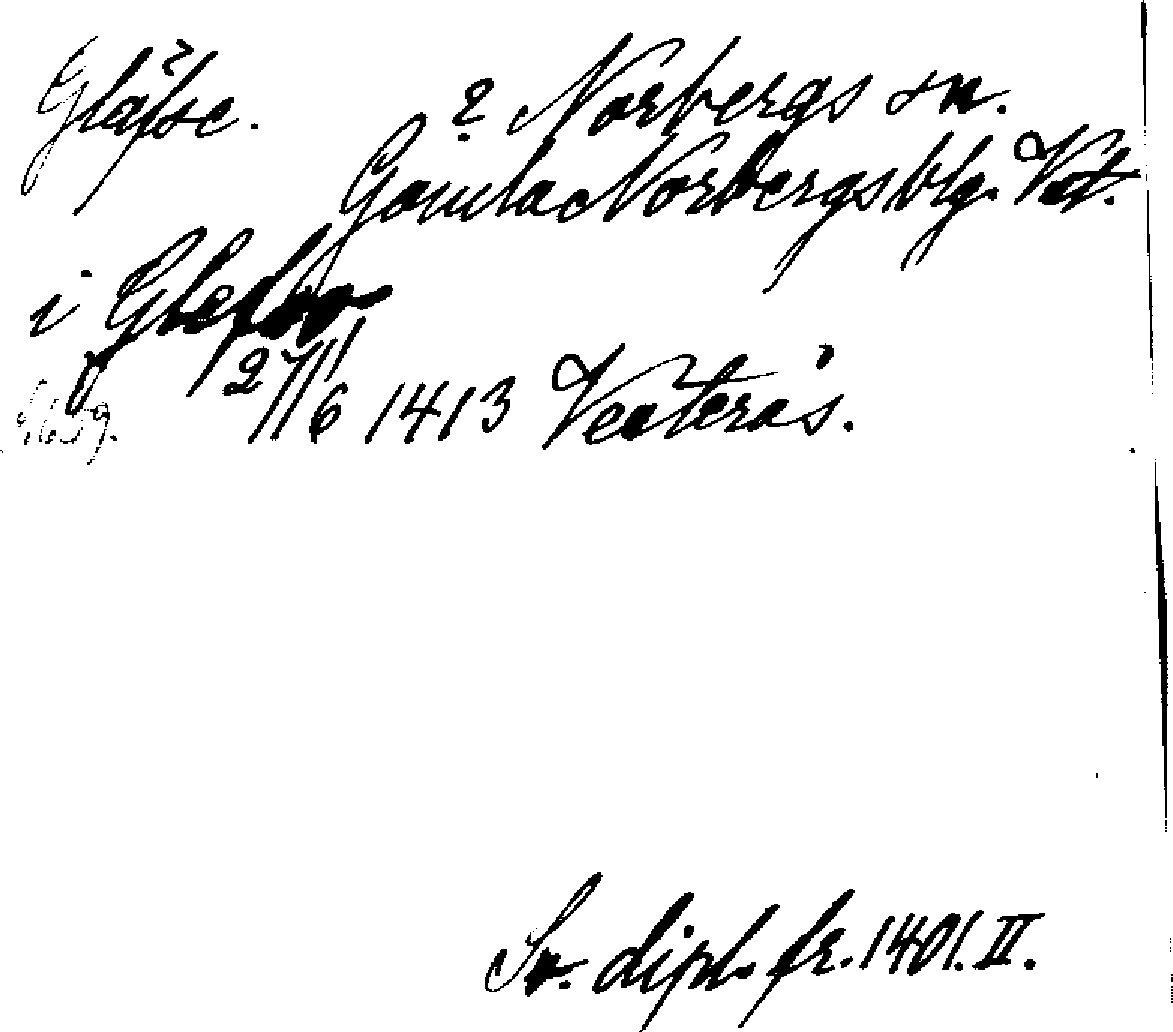 Gläfse. ? Norbergs sn.
Gamla Norbergs blg. Vst.
i Glefsø
27/6 1413 Vesterås.
Sv. dipl. fr. 1401. II.